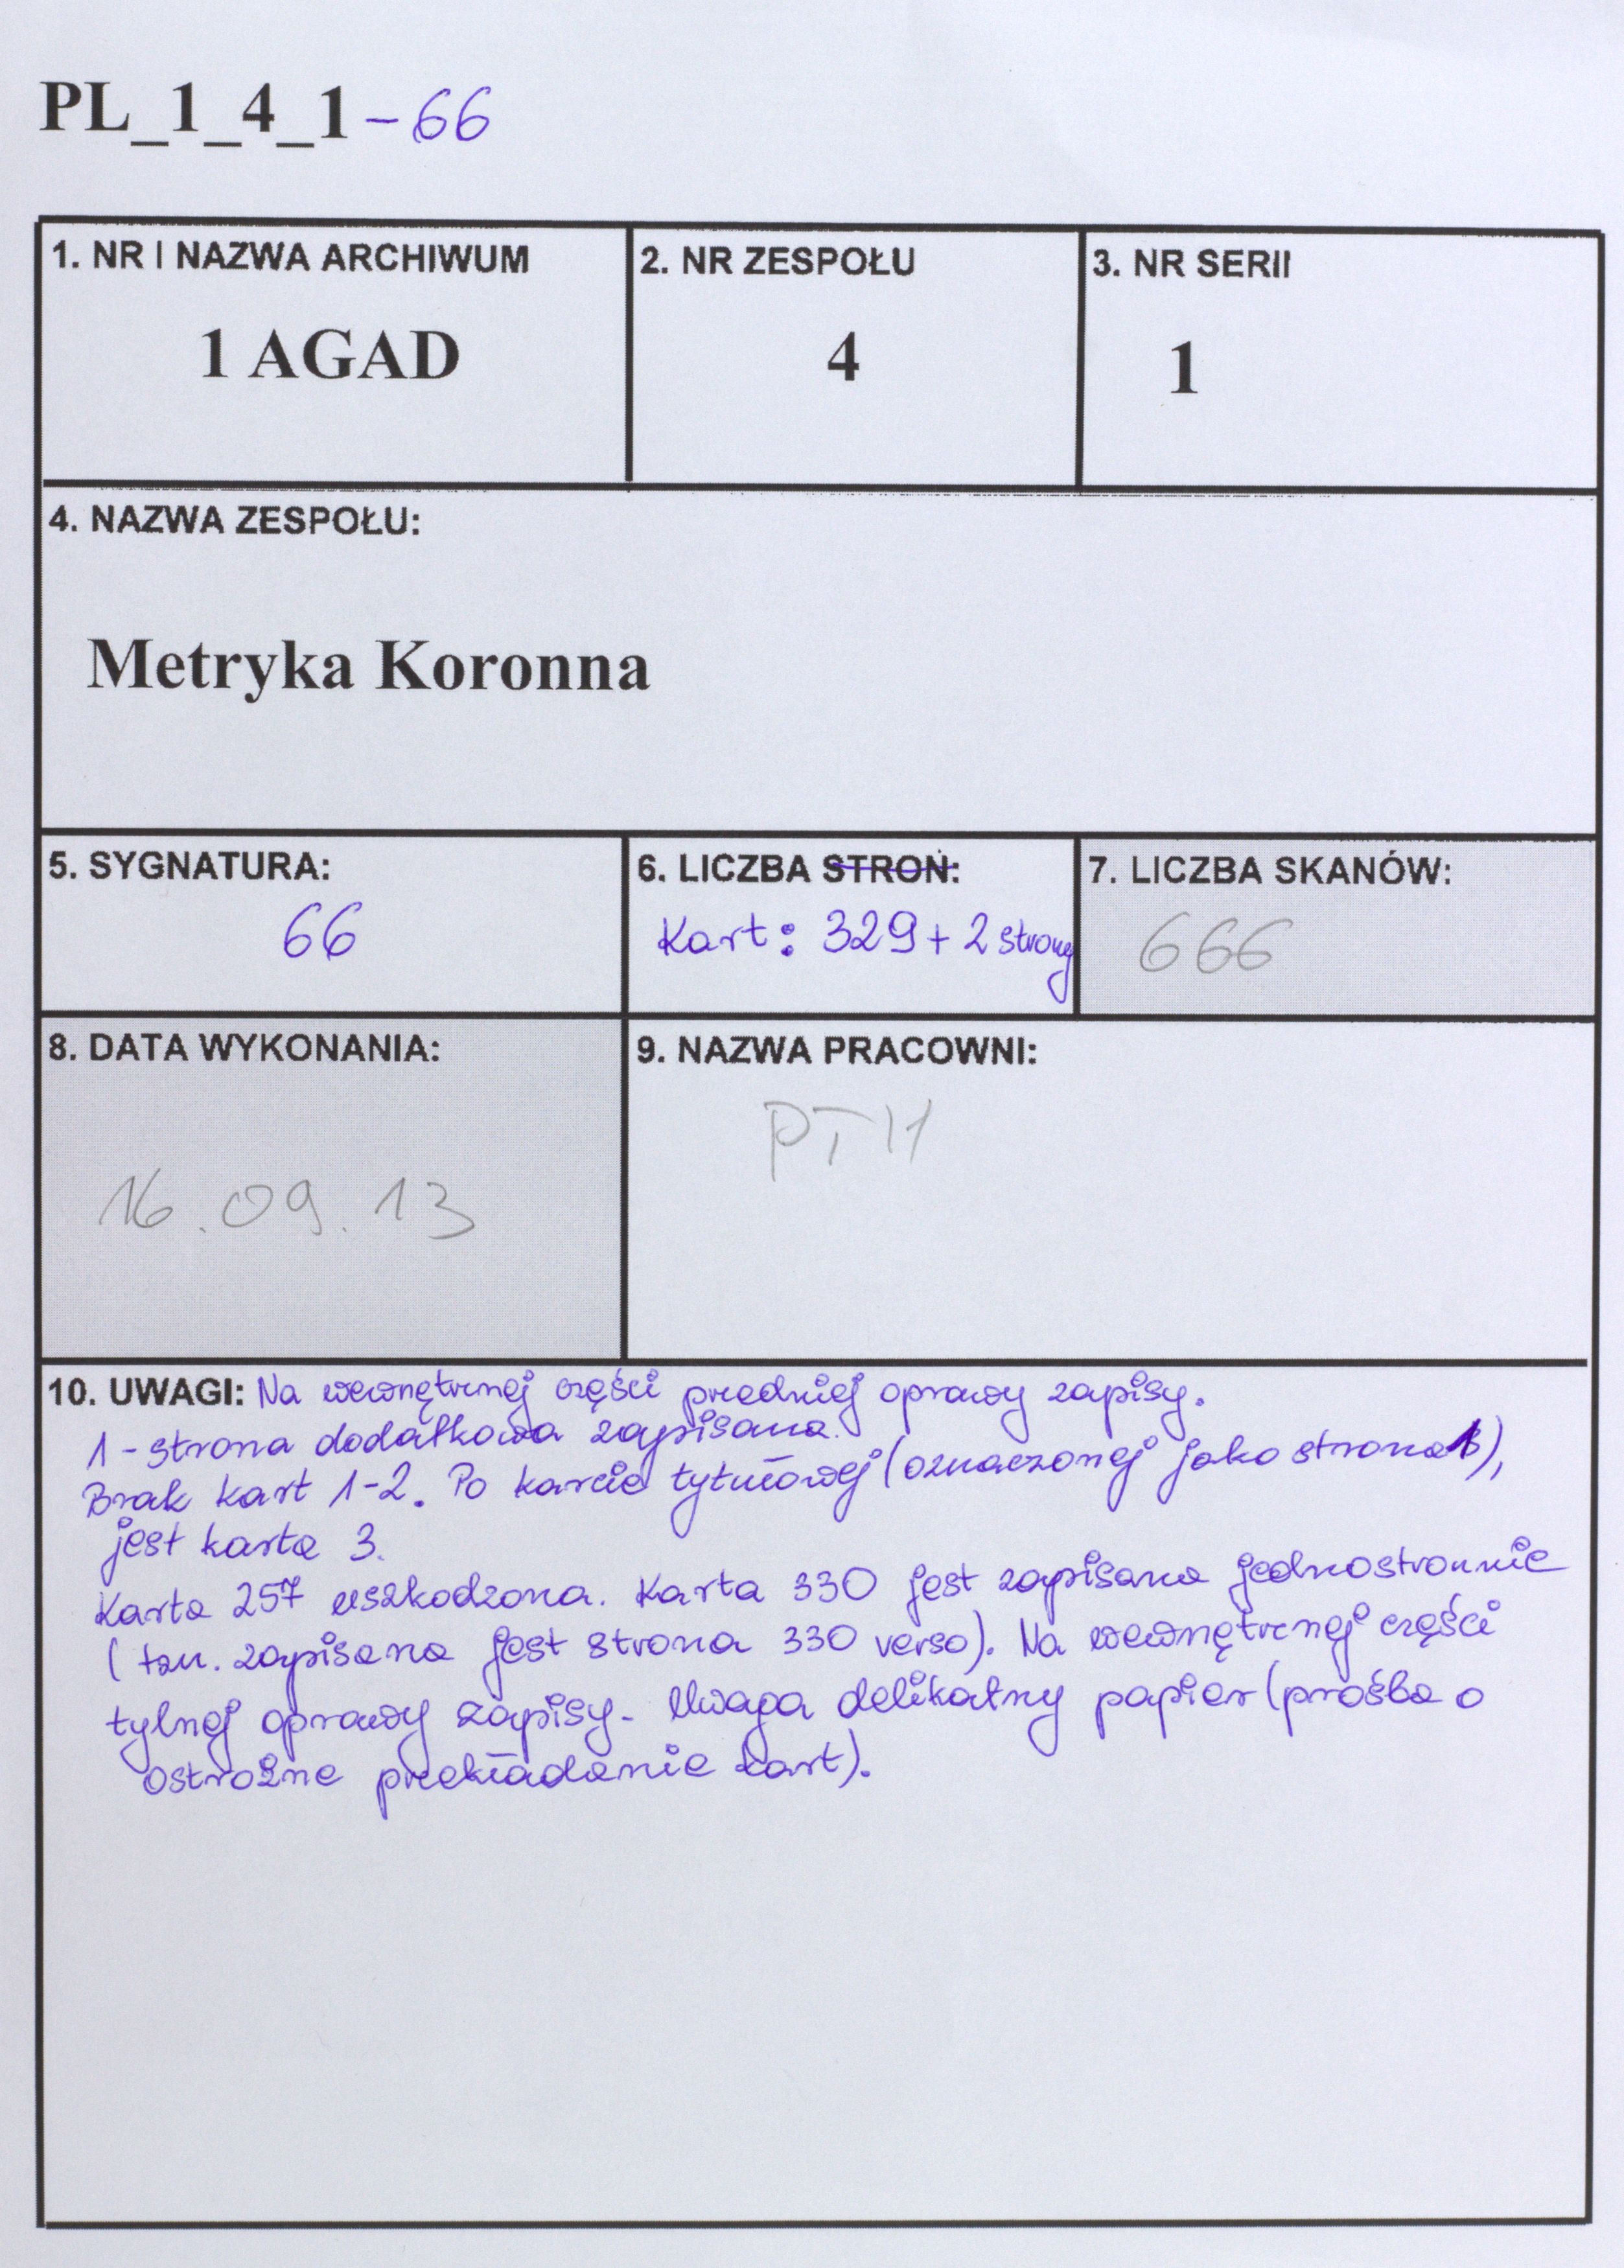 PL_1_4_1-66
1. NR I NAZWA ARCHIWUM
1 AGAD
2. NR ZESPOŁU
4
3. NR SERII
1
4. NAZWA ZESPOŁU:
Metryka Koronna
5. SYGNATURA:
66
6. LICZBA STRON:
Kart: 329 + 2 strony
7. LICZBA SKANÓW:
666
8. DATA WYKONANIA:
16.09.13
9. NAZWA PRACOWNI:
PTH
10. UWAGI: Na wewnętrznej części przedniej oprawy zapisy.
1 - strona dodatkowa zapisana.
Brak kart 1-2. Po karcie tytułowej (oznaczonej jako strona 1),
jest karta 3.
Karta 257 uszkodzona. Karta 330 jest zapisana jednostronnie
(tzn. zapisana jest strona 330 verso). Na wewnętrznej części
tylnej oprawy zapisy. Uwaga delikatny papier (prośba o
ostrożne przekładanie kart).